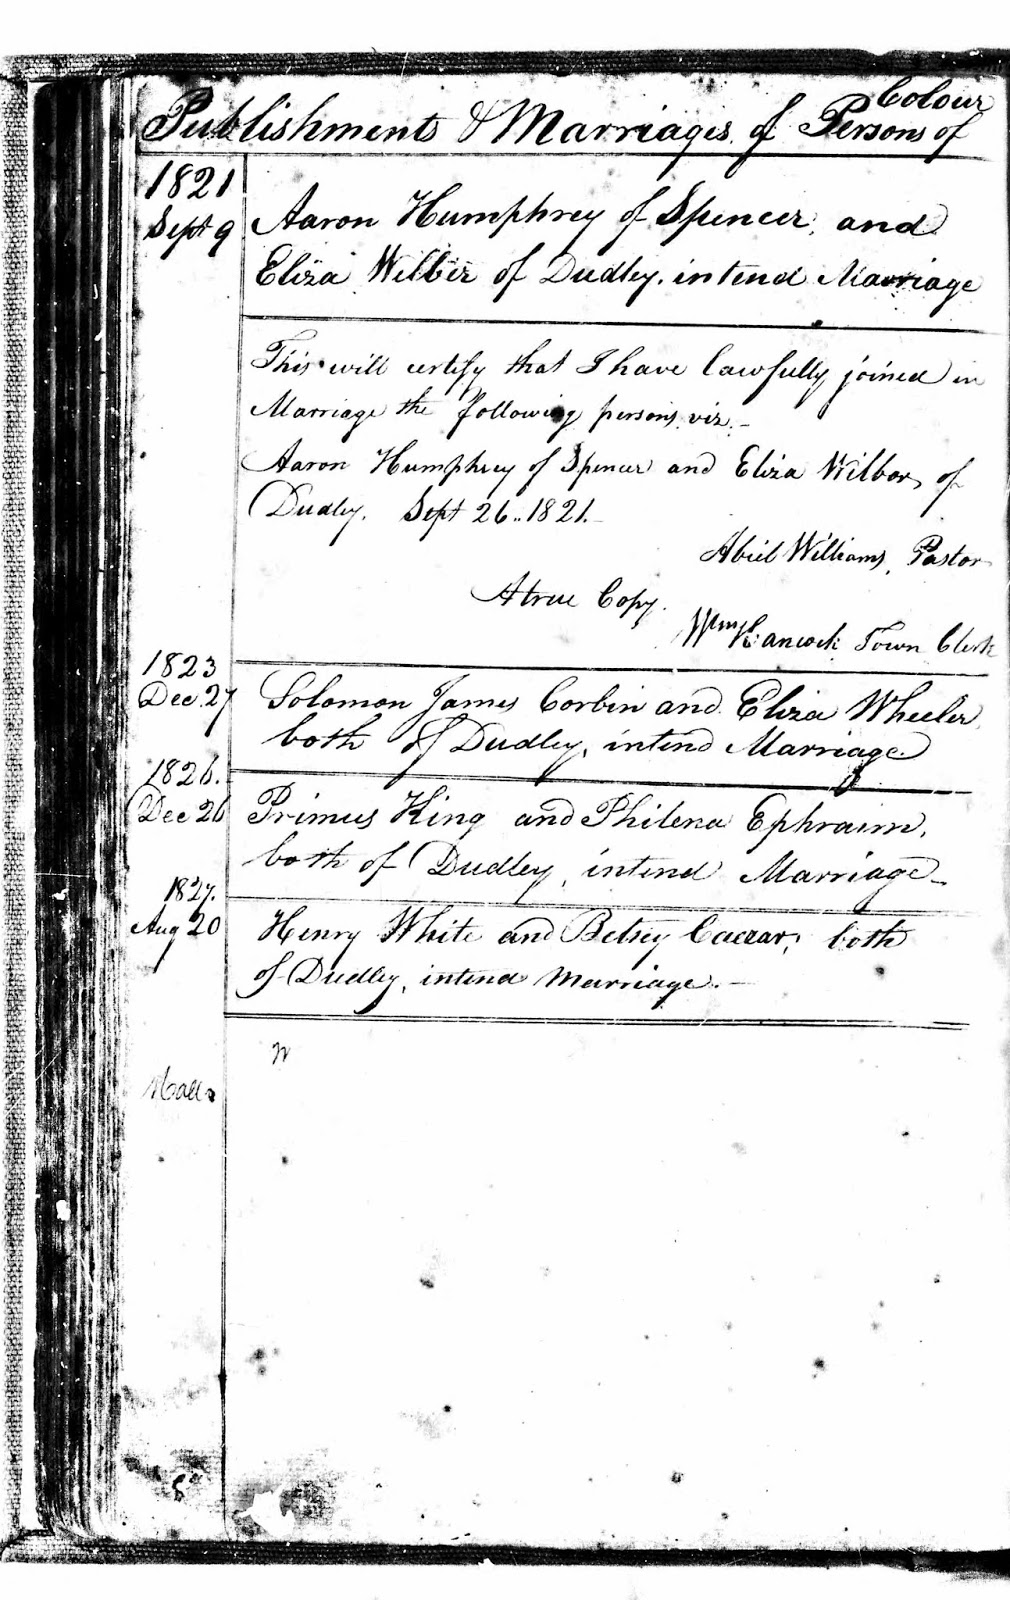 Publishments & Marriages of Persons of Colour
1821
Sept 9
Aaron Humphrey of Spencer, and
Eliza Wilber of Dudley. intend Marriage
This will certify that I have lawfully joined in
Marriage the following persons viz.-
Aaron Humphrey of Spencer and Eliza Wilbor, of
Dudley. Sept 26.. 1821.-
Abiel Williams, Pastor
A true Copy.
Wm Hancock Town Clerk
1823
Dec. 27
Solomon James Corbin and Eliza Wheeler,
both of Dudley, intend Marriage
1826.
Dec 26
Primus King and Philena Ephraim,
both of Dudley, intend Marriage-
1827.
Aug 20
Henry White and Betsey Caezar, both
of Dudley, intend Marriage.-